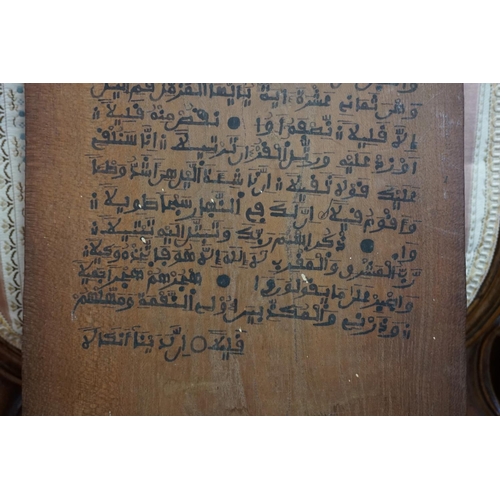 وهي ثماني عشرة اية يا ايها المزمل قم اليل
الا قليلا نصفه أو انقص منه قليلا
اوزد عليه ورتل القران ترتيلا انا سنلقي
عليك قولا ثقيلا ان ناشئة اليل هي اشد وطا
واقوم قيلا ان لك في النهار سبحا طويلا
واذكر اسم ربك وتبتل اليه تبتيلا
رب المشرق والمغرب لا اله الا هو فاتخذه وكيلا
واصبر على ما يقولون واهجرهم هجرا جميلا
وذرني والمكذبين اولي النعمة ومهلهم
قليلا ان لدينا انكالا